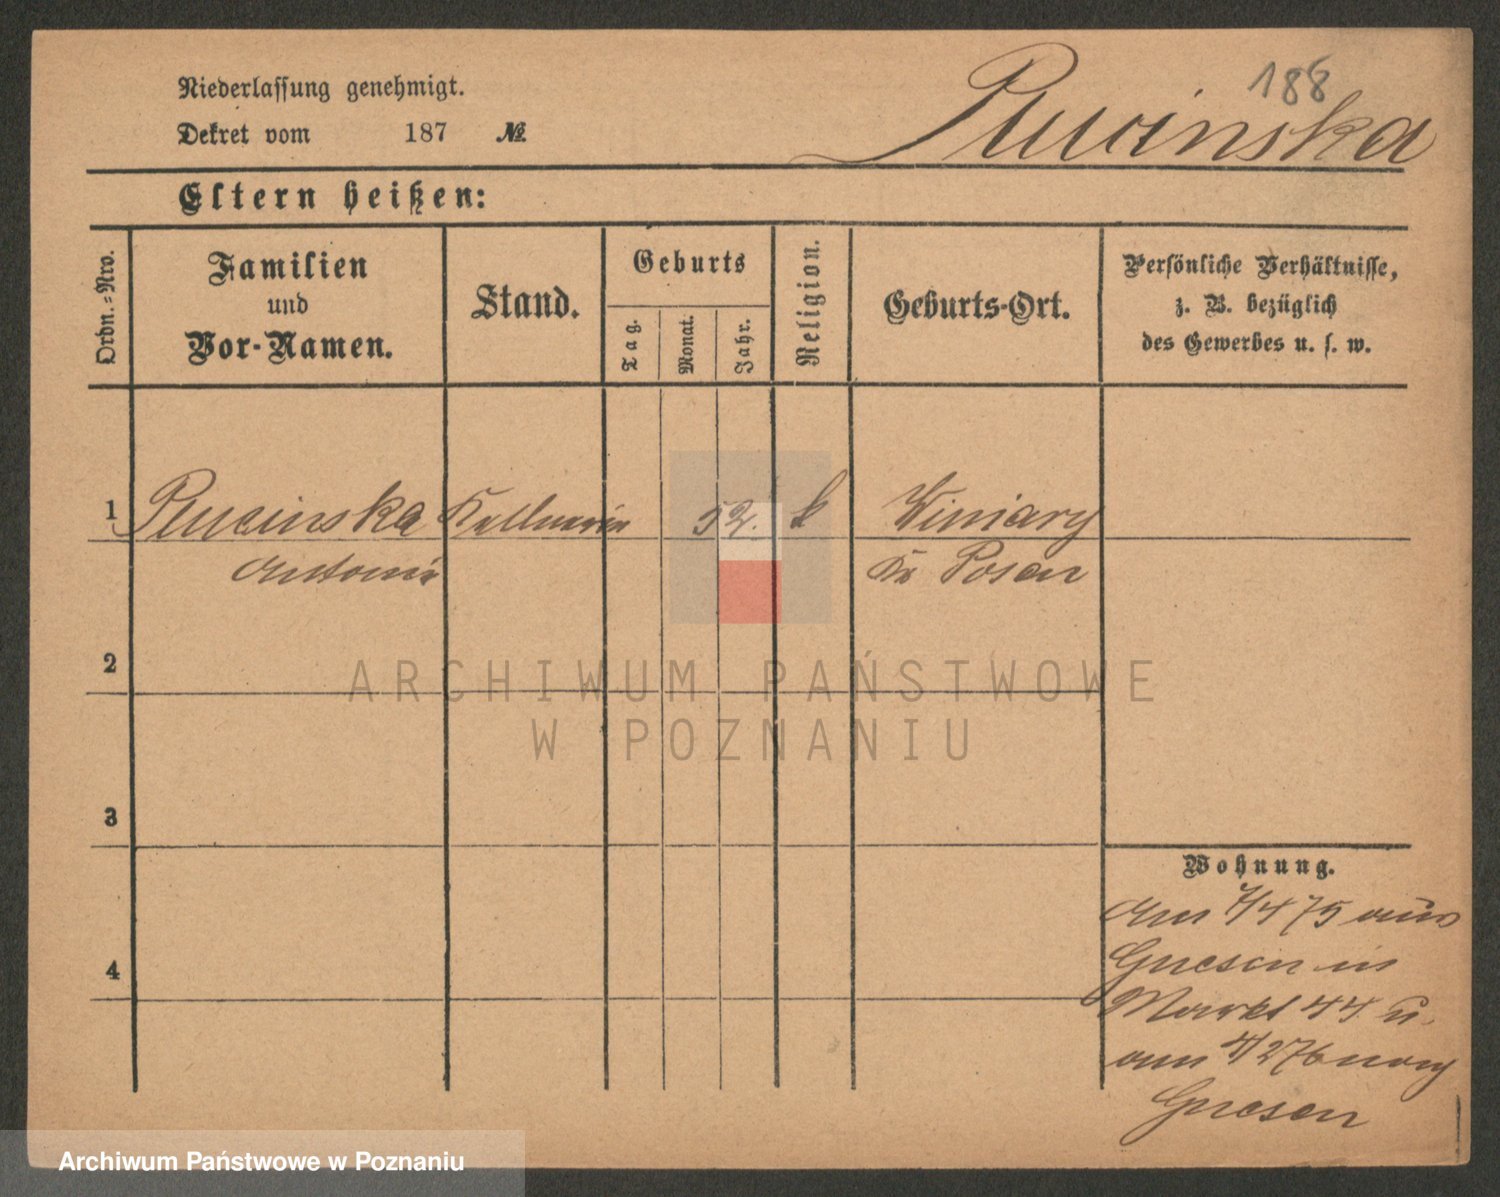 188
Pucinska
Niederlassung genehmigt.
Dekret vom 187 №
Eltern heißen:
Ordn.-Nro.
Familien
und
Vor-Namen.
Stand.
Geburts
Tag.
Monat.
Jahr.
Religion.
Geburts-Ort.
Persönliche Verhältnisse,
z. B. bezüglich
des Gewerbes u. s. w.
1 Pucinska Kellnerin 52. k Winiary
Antonie Kr Posen
2
ARCHIWUM PAŃSTWOWE
W POZNANIU
3
4
Wohnung.
Am 7/4 75 aus
Gnesen in
Markt 44 u.
am 4/2 76 nach
Gnesen
Archiwum Państwowe w Poznaniu